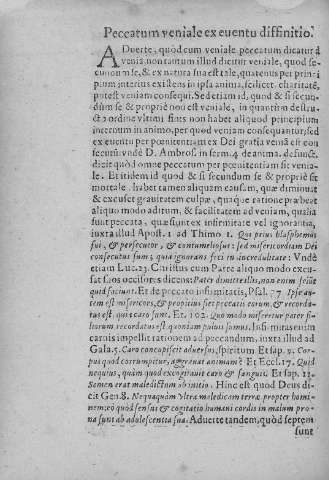 Peccatum veniale ex euentu diffinitio.
ADuerte, quòd cum veniale peccatum dicatur à
venia non tantum illud dicitur veniale, quod se-
cundum se, & ex natura sua est tale, quatenus per prin-
pium interius existens in ipsa anima, scilicet charitatē,
potest veniam consequi. Sed etiam id, quod & si secun-
dum se & propriè non est veniale, in quantùm destru-
cto ordine vltimi finis non habet aliquod principium
internum in animo, per quod veniam consequantur, sed
ex euentu per pœnitentiam ex Dei gratia veniā est con
secutū vndè D. Ambros. in serm. 4 de anima. defunct.
dicit quòd omne peccatum per pœnitentiam fit venia-
le. Et itidem id quod & si secundum se & propriè sit
mortale, habet tamen aliquam causam, quæ diminuat
& excuset grauitatem culpæ, quaque ratione præbeat
aliquo modo aditum, & facilitatem ad veniam, qualia
sunt peccata, quæ sunt ex infirmitate vel ignorantia,
iuxta illud Apost. 1 ad Thimo 1. Qui prius blasphemus
fui, & persecutor, & contumeliosus: sed misericordiam Dei
consecutus sum; quia ignorans feci in incredulitate: Vndè
etiam Luc. 23. Christus cum Patre aliquo modo excu-
sat suos occisores dicens: Pater dimitte illis, non enim sciūt
quid faciunt. Et de peccato infirmitatis, Psal. 77. Ipse au-
tem est misericors, & propitius fiet peccatis eorum, & recorda-
tus est, quia caro sunt. Et 102. Quo modo miseretur pater fi-
liorum recordatus est quoniam puluis sumus. Infirmitas enim
carnis impellit rationem ad peccandum, iuxta illud ad
Gala. 5. Caro concupiscit aduersus, spiritum. Et sap. 9. Cor-
pus quod corrumpitur, aggrauat animam. Et Eccl. 17. Quid
nequius, quàm quod excogitauit caro & sanguis. Et sap. 12.
Semen erat maledictum ab initio. Hinc est quòd Deus di-
cit Gen. 8. Nequaquam vltra maledicam terræ propter homi-
nem: eò quod sensus & cogitatio humani cordis in malum pro-
na sunt ab adolescentia sua. Aduerte tandem, quòd septem
sunt